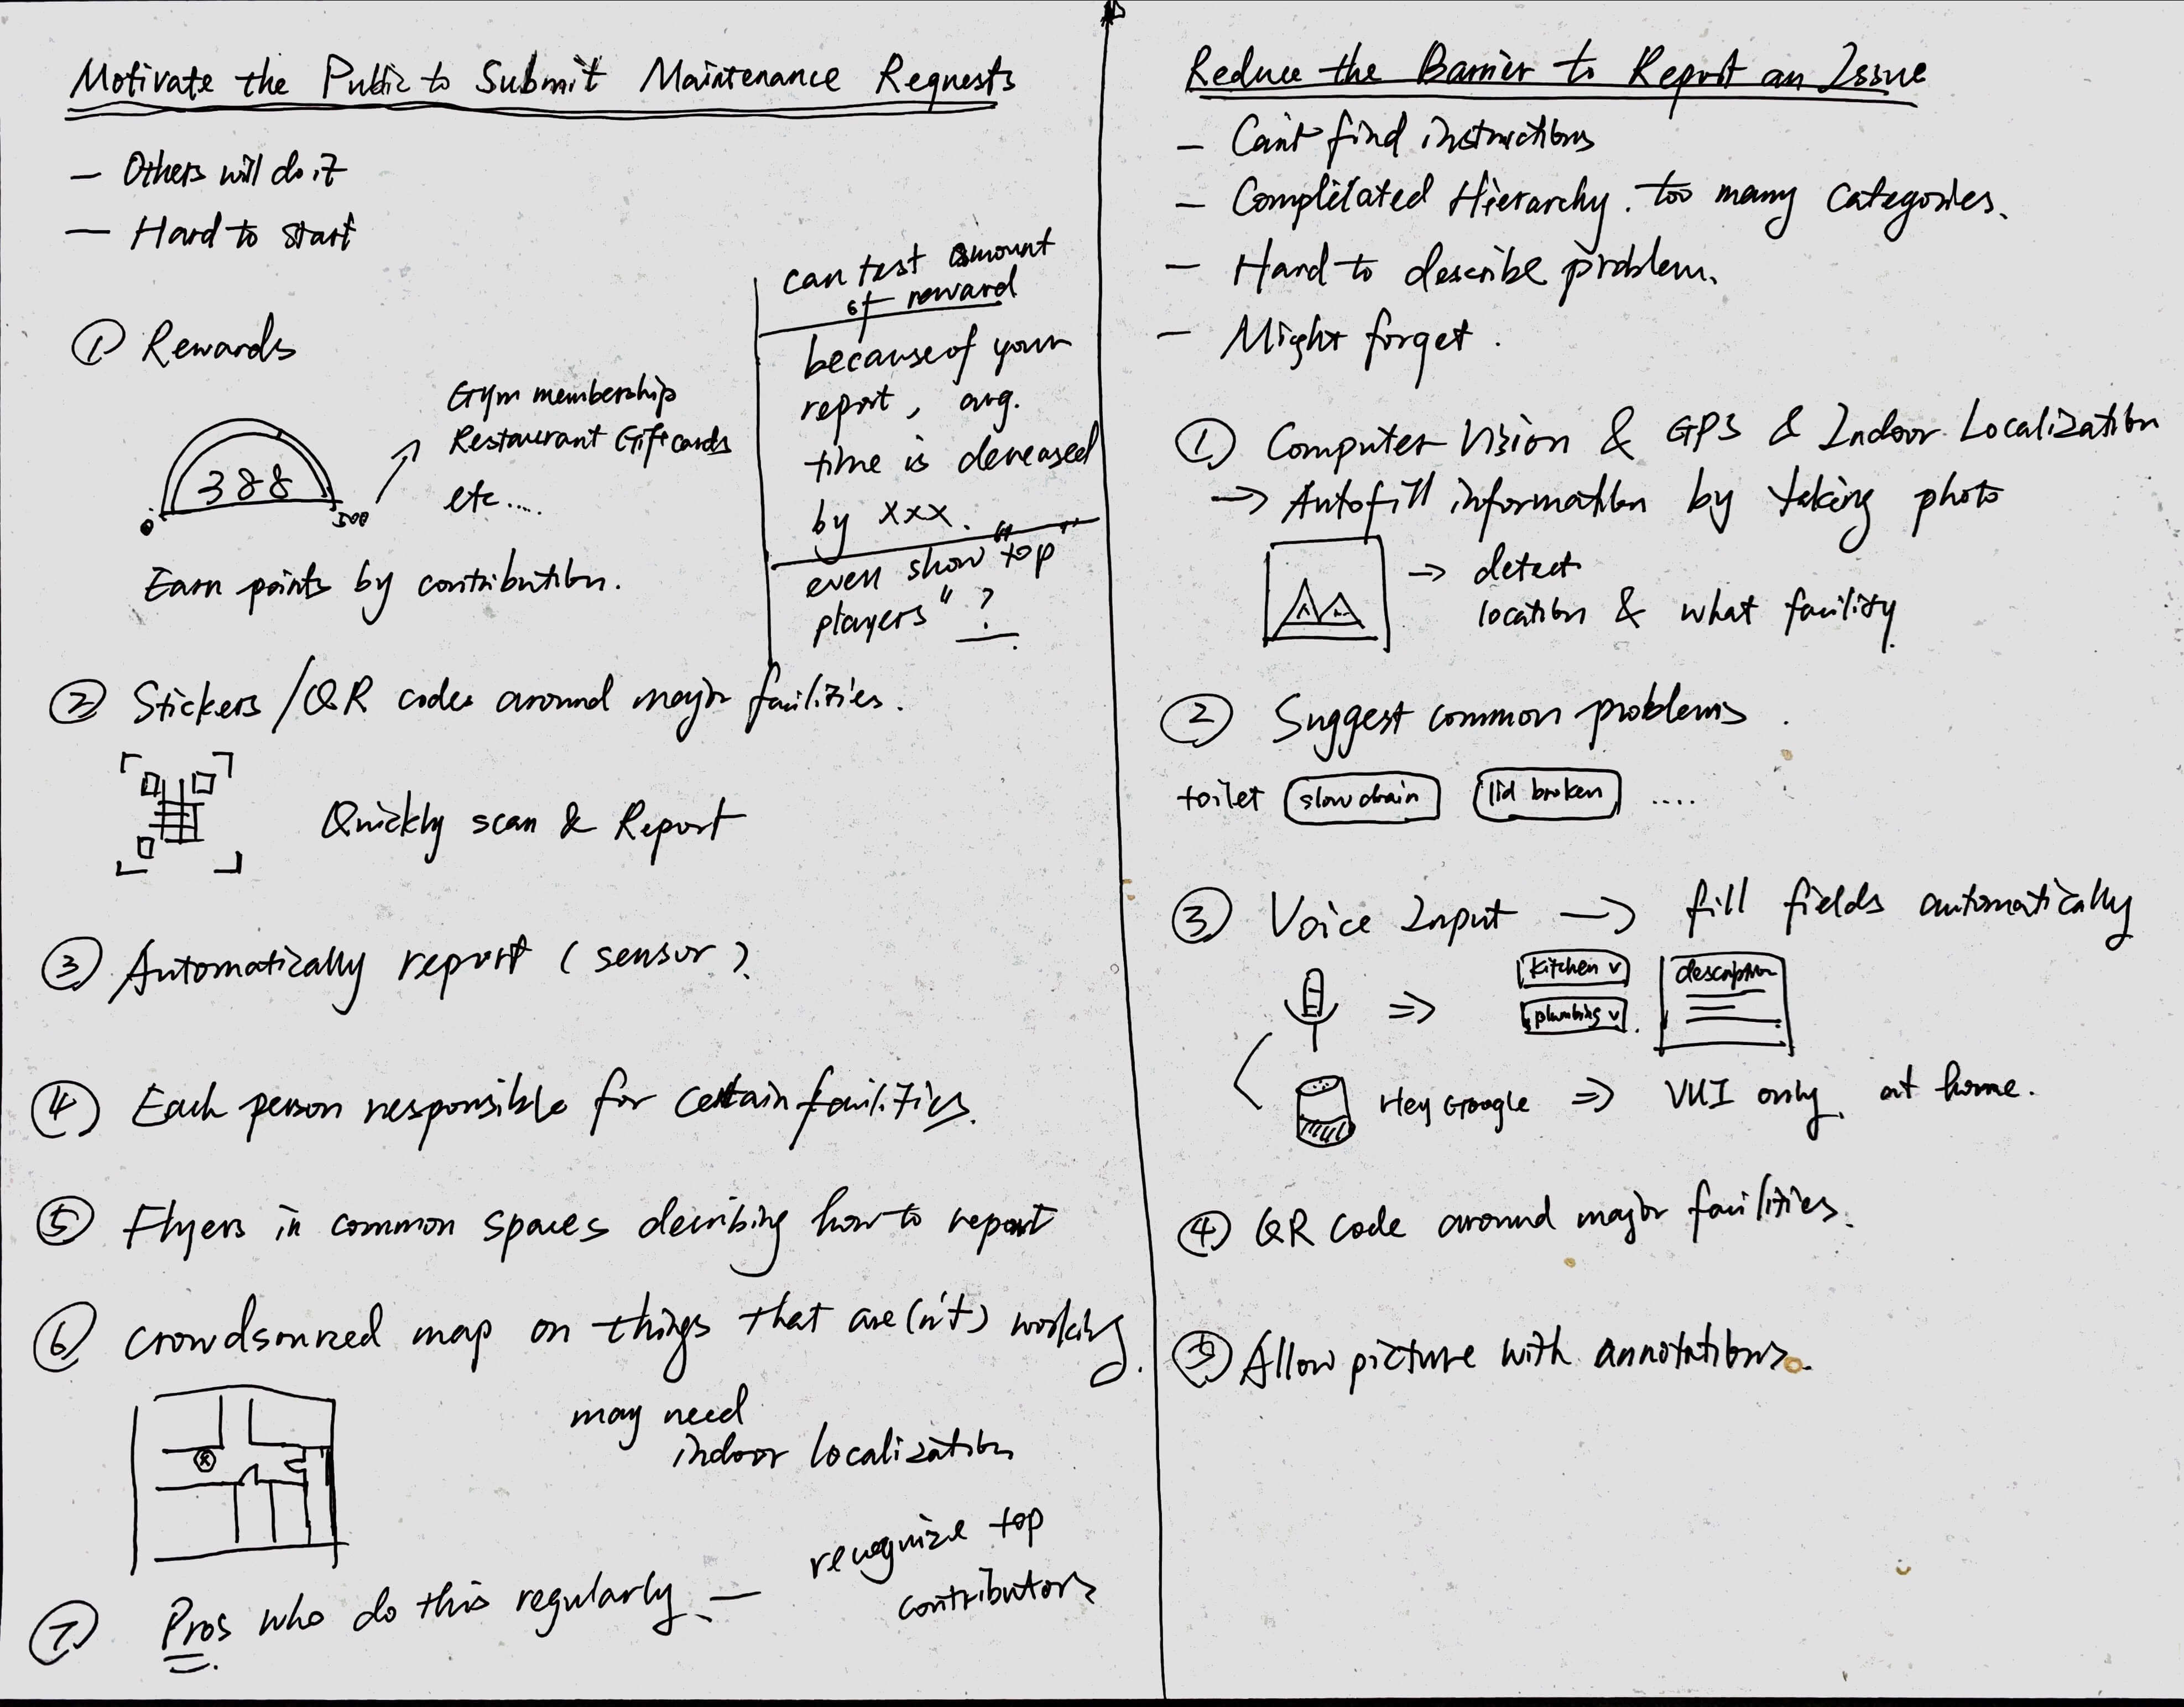 Motivate the Public to Submit Maintenance Requests
— Others will do it
— Hard to start
① Rewards
388
0
500
Gym membership
Restaurant Gift cards
etc....
Earn points by contribution.
can test amount
of reward
because of your
report, avg.
time is decreased
by xxx.
even show "top
players" ?
② Stickers / QR codes around major facilities.
Quickly scan & Report
③ Automatically report (sensor).
④ Each person responsible for certain facilities.
⑤ Flyers in common spaces decribing how to report
⑥ Crowdsourced map on things that are(n't) working.
may need
indoor localization
⑦ Pros who do this regularly. —
recognize top
contributors
Reduce the Barrier to Report an Issue
— Can't find instructions
— Complicated Hierarchy. too many categories.
— Hard to describe problem.
— Might forget.
① Computer Vision & GPS & Indoor Localization
→ Autofill information by taking photo
→ detect
location & what facility
② Suggest common problems.
toilet slow drain lid broken ....
③ Voice Input → fill fields automatically
⇒ kitchen v
plumbing v
description
Hey Google ⇒ VUI only, at home.
④ QR code around major facilities.
⑤ Allow picture with annotations.